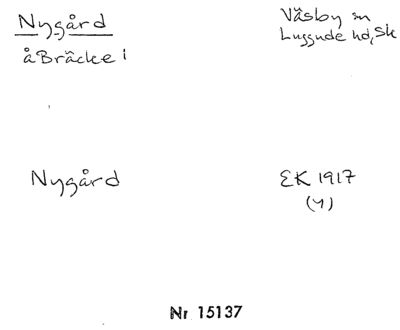 Nygård
Väsby sn
åBräcke 1
Luggude hd, Sk
Nygård
EK 1917
(4)
Nr 15137